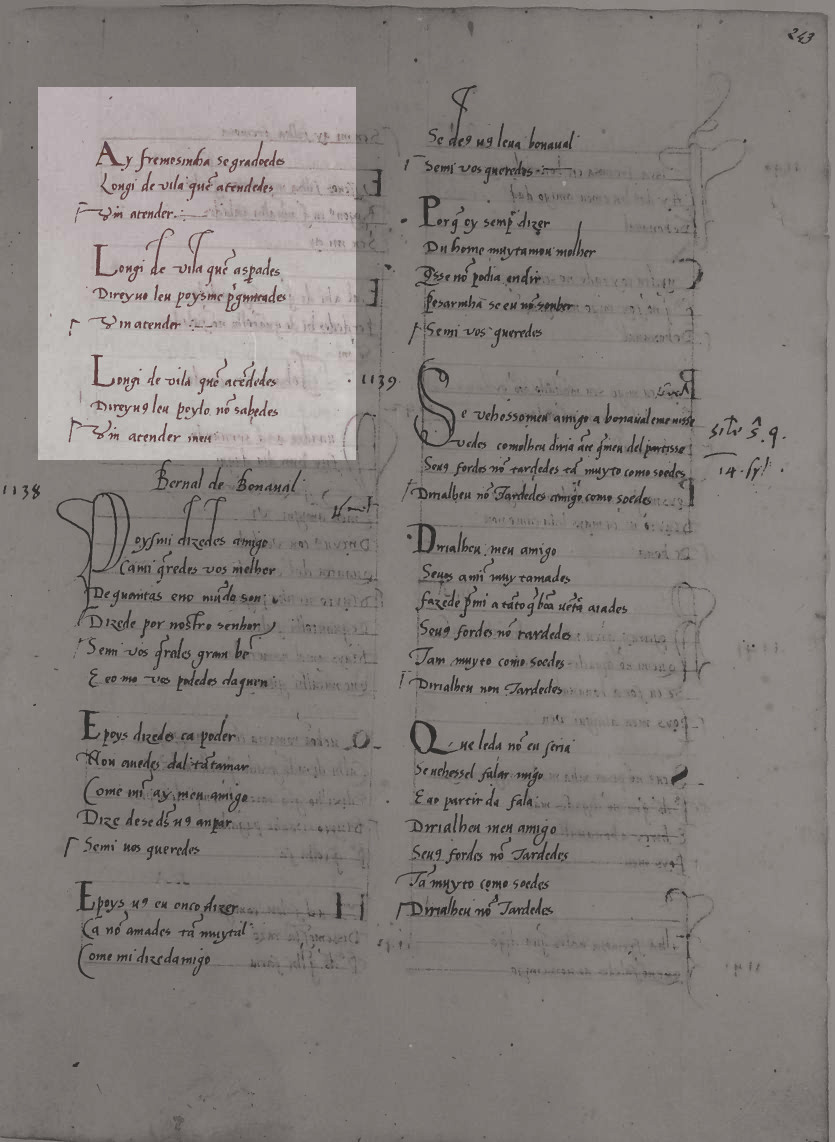 243
Ay fremosinha se gradoedes
Longi de vila quẽ atendedes
Vin atender
Longi de vila quẽ asperades
Direy uo leu poys me p̃guntades
Vin atender
Longi de vila quẽ atẽdedes
Direy uꝯ leu poylo nõ sabedes
Vin atender meu
Bernal de Bonaual
1138
Poys mi dizedes amigo
Ca mi q̃redes vos melhor
De quantas eno mũdo son
Dizede por nostro senhor
Se mi vos q̃redes gram bẽ
E eo mo vos podedes daquen
E poys dizedes ca poder
Non auedes dal tã amar
Come mĩ ay meu amigo
Dize de se ds̃ uꝯ anpar
Se mi uos queredes
E poys uꝯ eu onco dizer
Ca nõ amades tã muyt al
Come mi dized amigo
Se deꝯ uꝯ leua bonaual
Se mi vos queredes
Por q̃ oy semp̃ dizer
Du home muyt amou molher
Q̃sse nõ podia end ir
Pesar mh a se eu nõ souber
Se mi vos queredes
1139
Se vehesso meu amigo a bonaual e me uisse
Vedes como lheu diria ãte q̃ meu del partisse
Seuꝯ fordes nõ tardedes tã muyto como soedes
Dirialheu nõ Tardedes amigo como soedes
Dirialheu meu amigo
Seuos a mĩ muy tamades
fazede p̃ mi a tãto q̃ bõa uẽtã aiades
Seuꝯ fordes nõ tardedes
Tam muyto como soedes
Dirialheu non Tardedes
Que leda nõ eu seria
Se uehessel falar migo
E ao partir da fala
Dirialheu meu amigo
Seuꝯ fordes nõ Tardedes
Tã muyto como soedes
Dirialheu nõ Tardedes